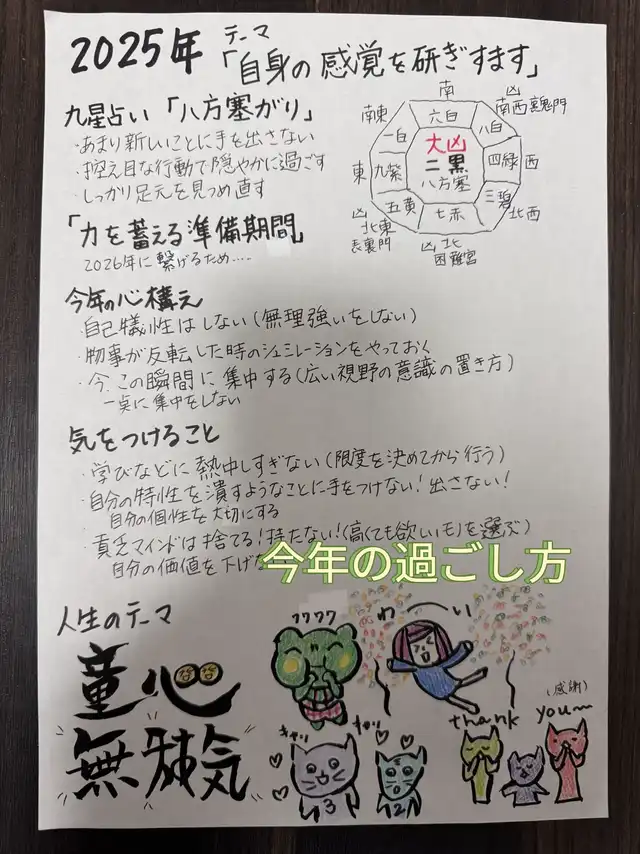 2025年 テーマ
「自身の感覚を研ぎすます」
九星占い「八方塞がり」
・あまり新しいことに手を出さない
・控え目な行動で穏やかに過ごす
・しっかり足元を見つめ直す
南
凶
南東
南西裏鬼門
六白
一白
八白
大凶
東
九紫
二黒
四緑
西
八方塞
五黄
三碧
七赤
凶
北東
北西
表裏門
凶
北
困難宮
「力を蓄える準備期間」
2026年に繋げるため....
今年の心構え
・自己犠牲はしない(無理強いをしない)
・物事が反転した時のシュミレーションをやっておく
・今、この瞬間に集中する(広い視野の意識の置き方)
一点に集中をしない
気をつけること
・学びなどに熱中しすぎない(限度を決めてから行う)
・自分の特性を潰すようなことに手をつけない!出さない!
自分の個性を大切にする
・貧乏マインドは捨てる!持たない!(高くても欲しいモノを選ぶ)
自分の価値を下げな
今年の過ごし方
人生のテーマ
童心
無邪気
ワクワク
わーい
キャッ
キャッ
3
2
(感謝)
thank you〜